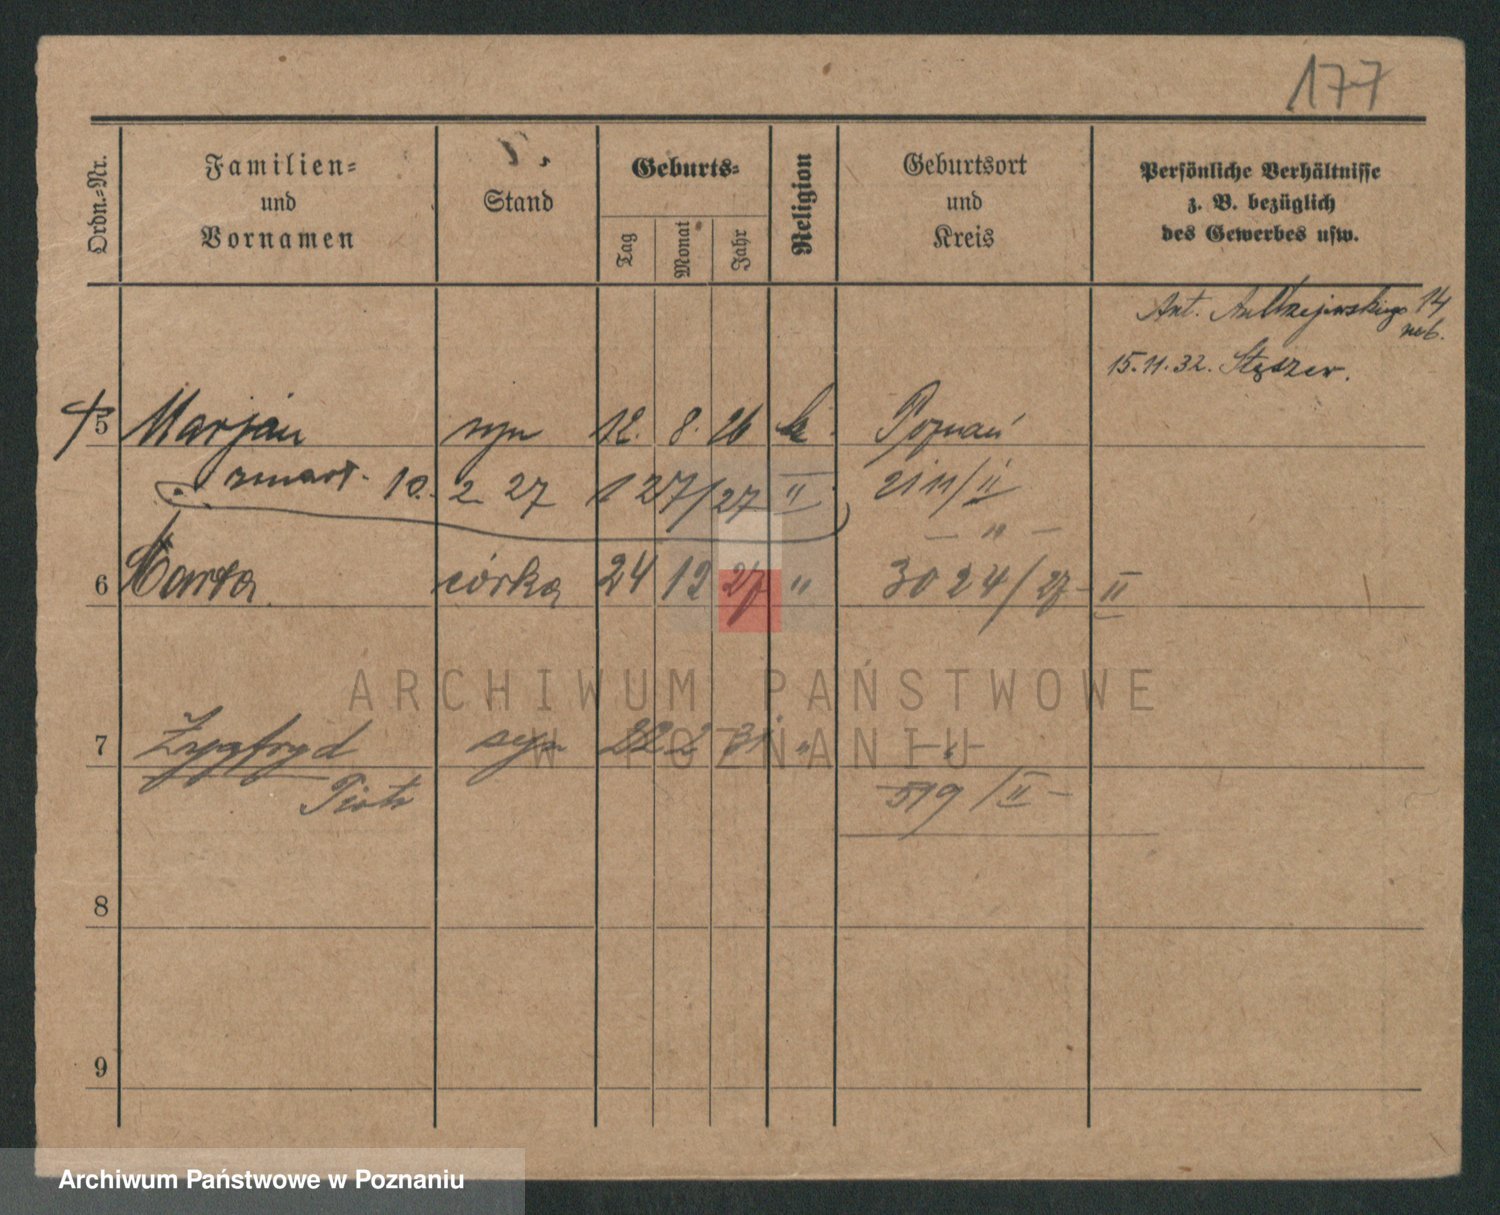 177
Ordn.=Nr.
Familien=
und
Vornamen
Stand
Geburts=
Tag
Monat
Jahr
Religion
Geburtsort
und
Kreis
Persönliche Verhältnisse
z. B. bezüglich
des Gewerbes usw.
Ant. Andrzejewskiego 14
15.11.32. Stęszew.
5 Marjan syn 12. 8. 26 k Poznań
zmarł. 10. 2 27 127/27 II
— " —
6 Marta córka 24 12 27 " 3024/27 - II
7 Zygfryd syn 22 2 31 " — " —
Piotr 519/II -
8
9
ARCHIWUM PAŃSTWOWE
W POZNANIU
Archiwum Państwowe w Poznaniu